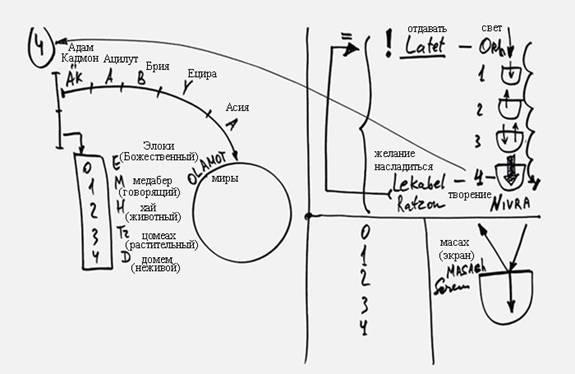 4
Адам
Кадмон
АК
Ацилут
A
Брия
B
Ецира
Y
Асия
A
0
1
2
3
4
E
M
H
Tz
D
Элоки
(Божественный)
медабер
(говорящий)
хай
(животный)
цомеах
(растительный)
домем
(неживой)
OLAMOT
миры
=
отдавать
! Latet – Orh
свет
1
2
3
4
желание
насладиться
Lekabel
Ratzon
творение
NIVRA
0
1
2
3
4
масах
(экран)
MASACH